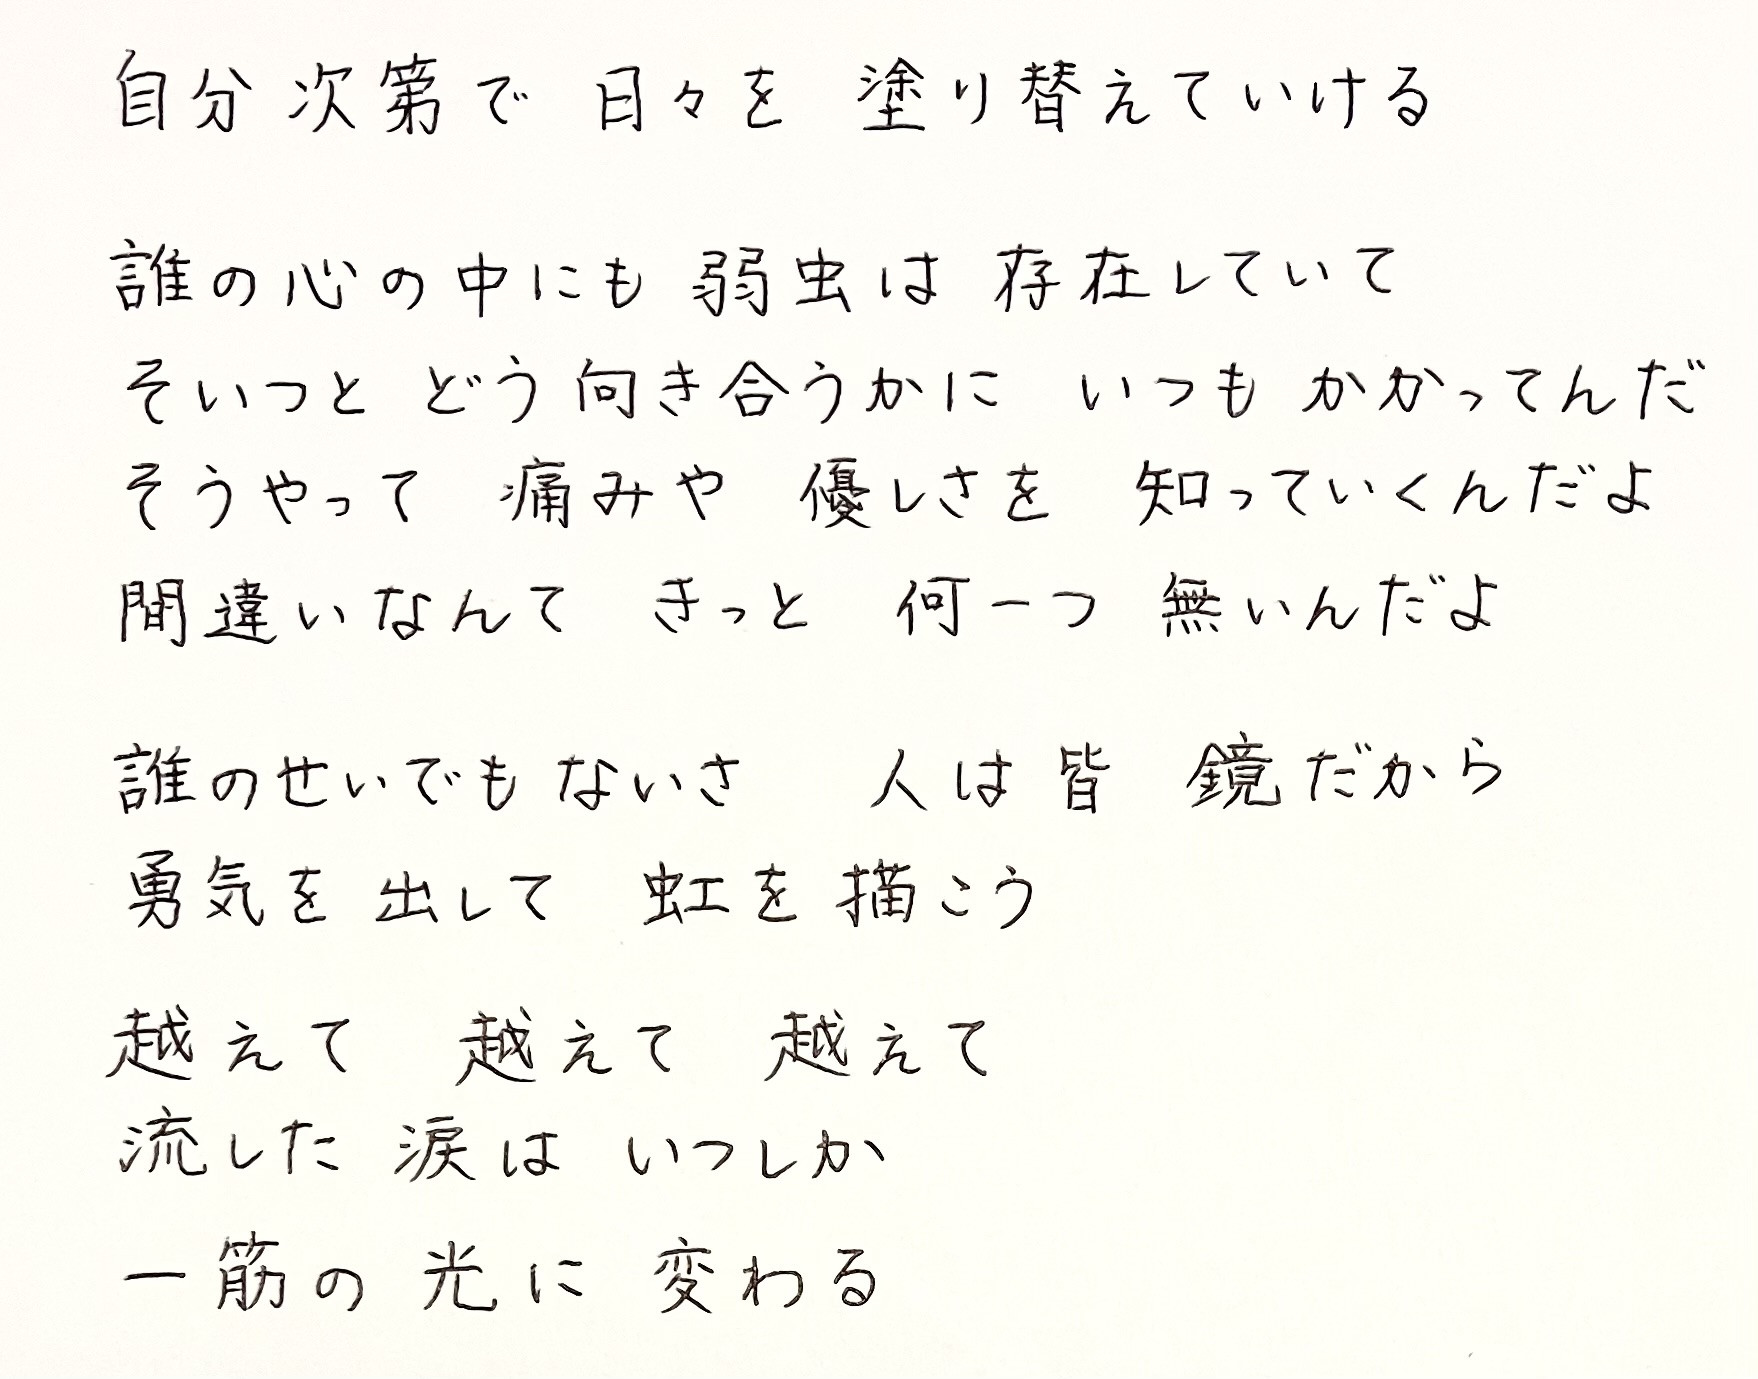 自分次第で 日々を 塗り替えていける
誰の心の中にも 弱虫は 存在していて
そいつと どう向き合うかに いつも かかってんだ
そうやって 痛みや 優しさを 知っていくんだよ
間違いなんて きっと 何一つ 無いんだよ
誰のせいでも ないさ 人は 皆 鏡だから
勇気を 出して 虹を 描こう
越えて 越えて 越えて
流した 涙は いつしか
一筋の 光に 変わる